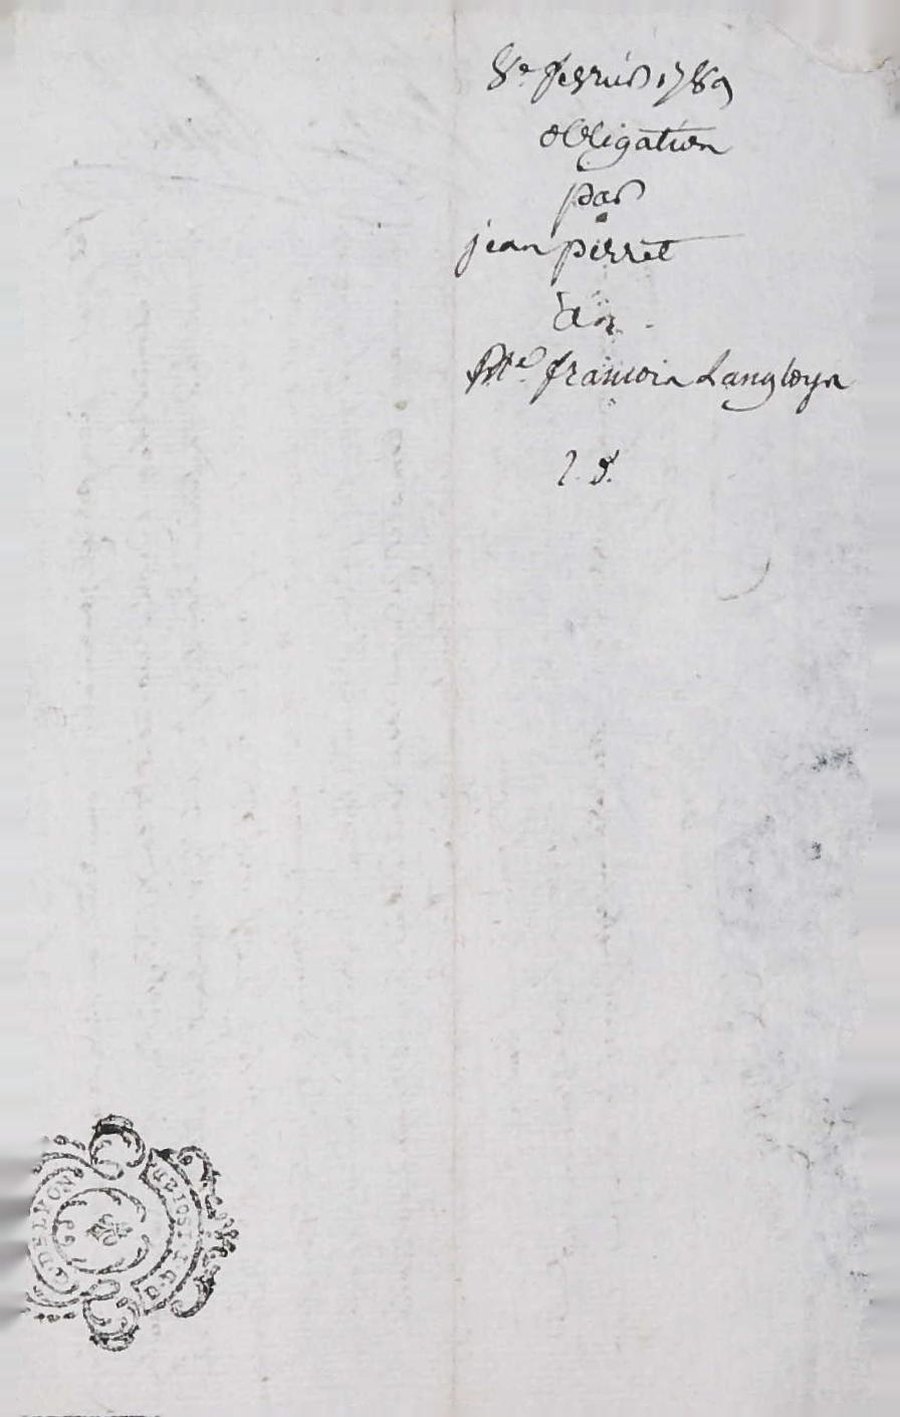 8e fevrier 1789
obligation
par
jean perret
à
Me. francois Langloys
G DE LYON